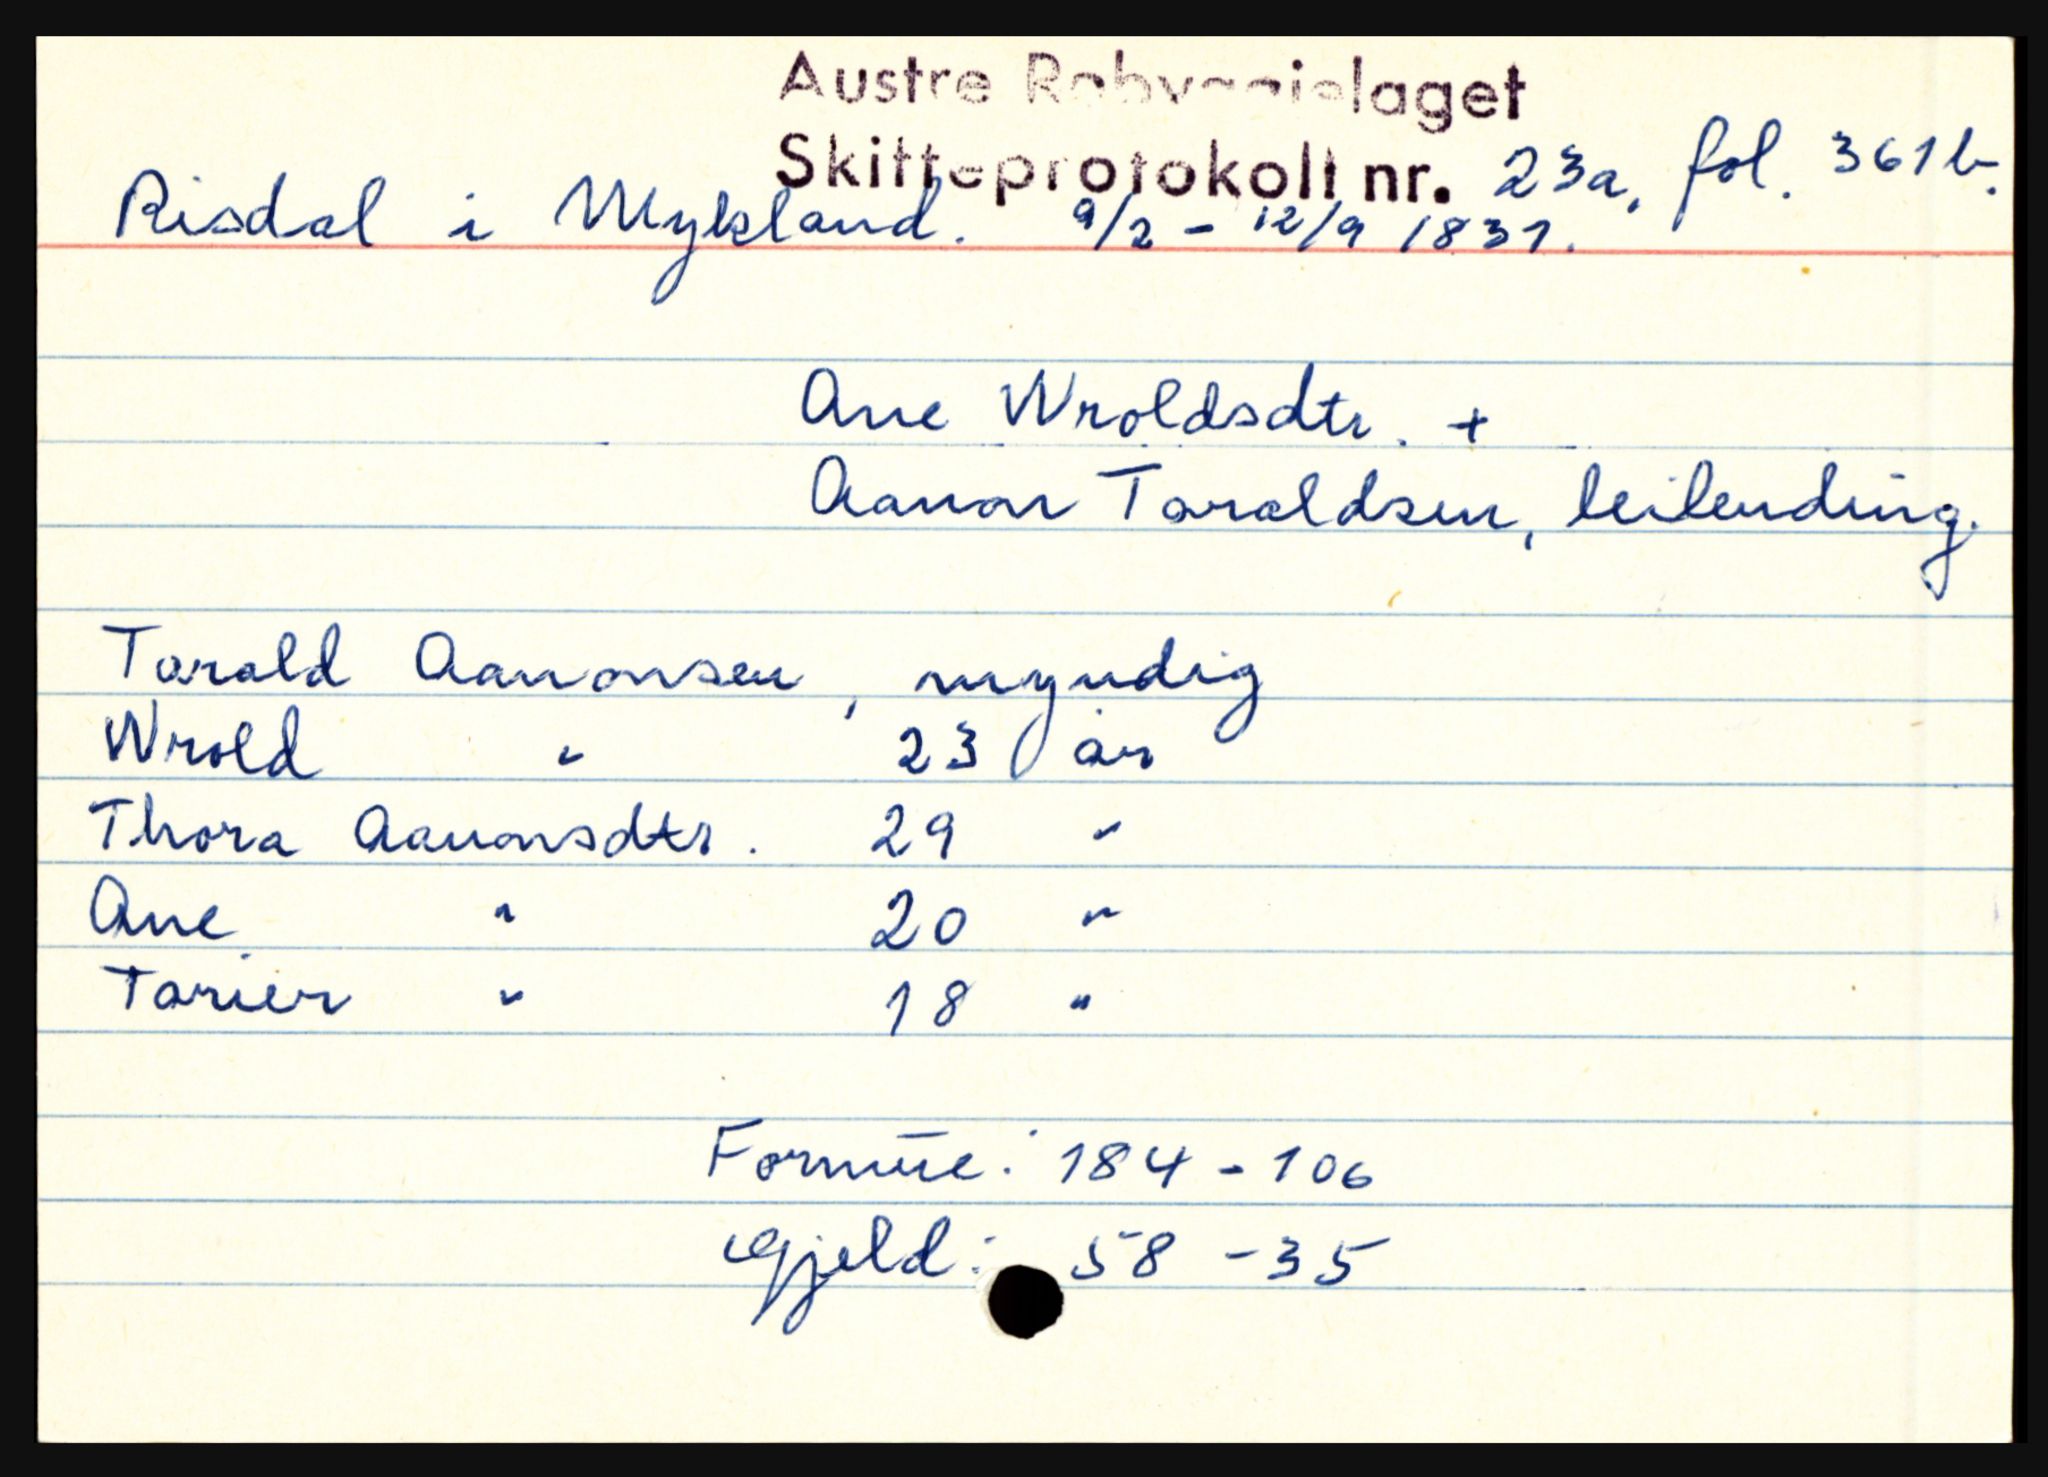 Austre Robyggjelaget
Skifteprotokoll nr. 23a, fol. 361b.
Risdal i Mykland. 9/2 - 12/9 1831.
Ane Wroldsdtr. +
Aanon Taraldsen, leilending.
Tarald Aanonsen, myndig
Wrold " 23 år
Thora Aanonsdtr. 29 "
Ane " 20 "
Tarier " 18 "
Formue: 184 - 106
Gjeld: 58 - 35